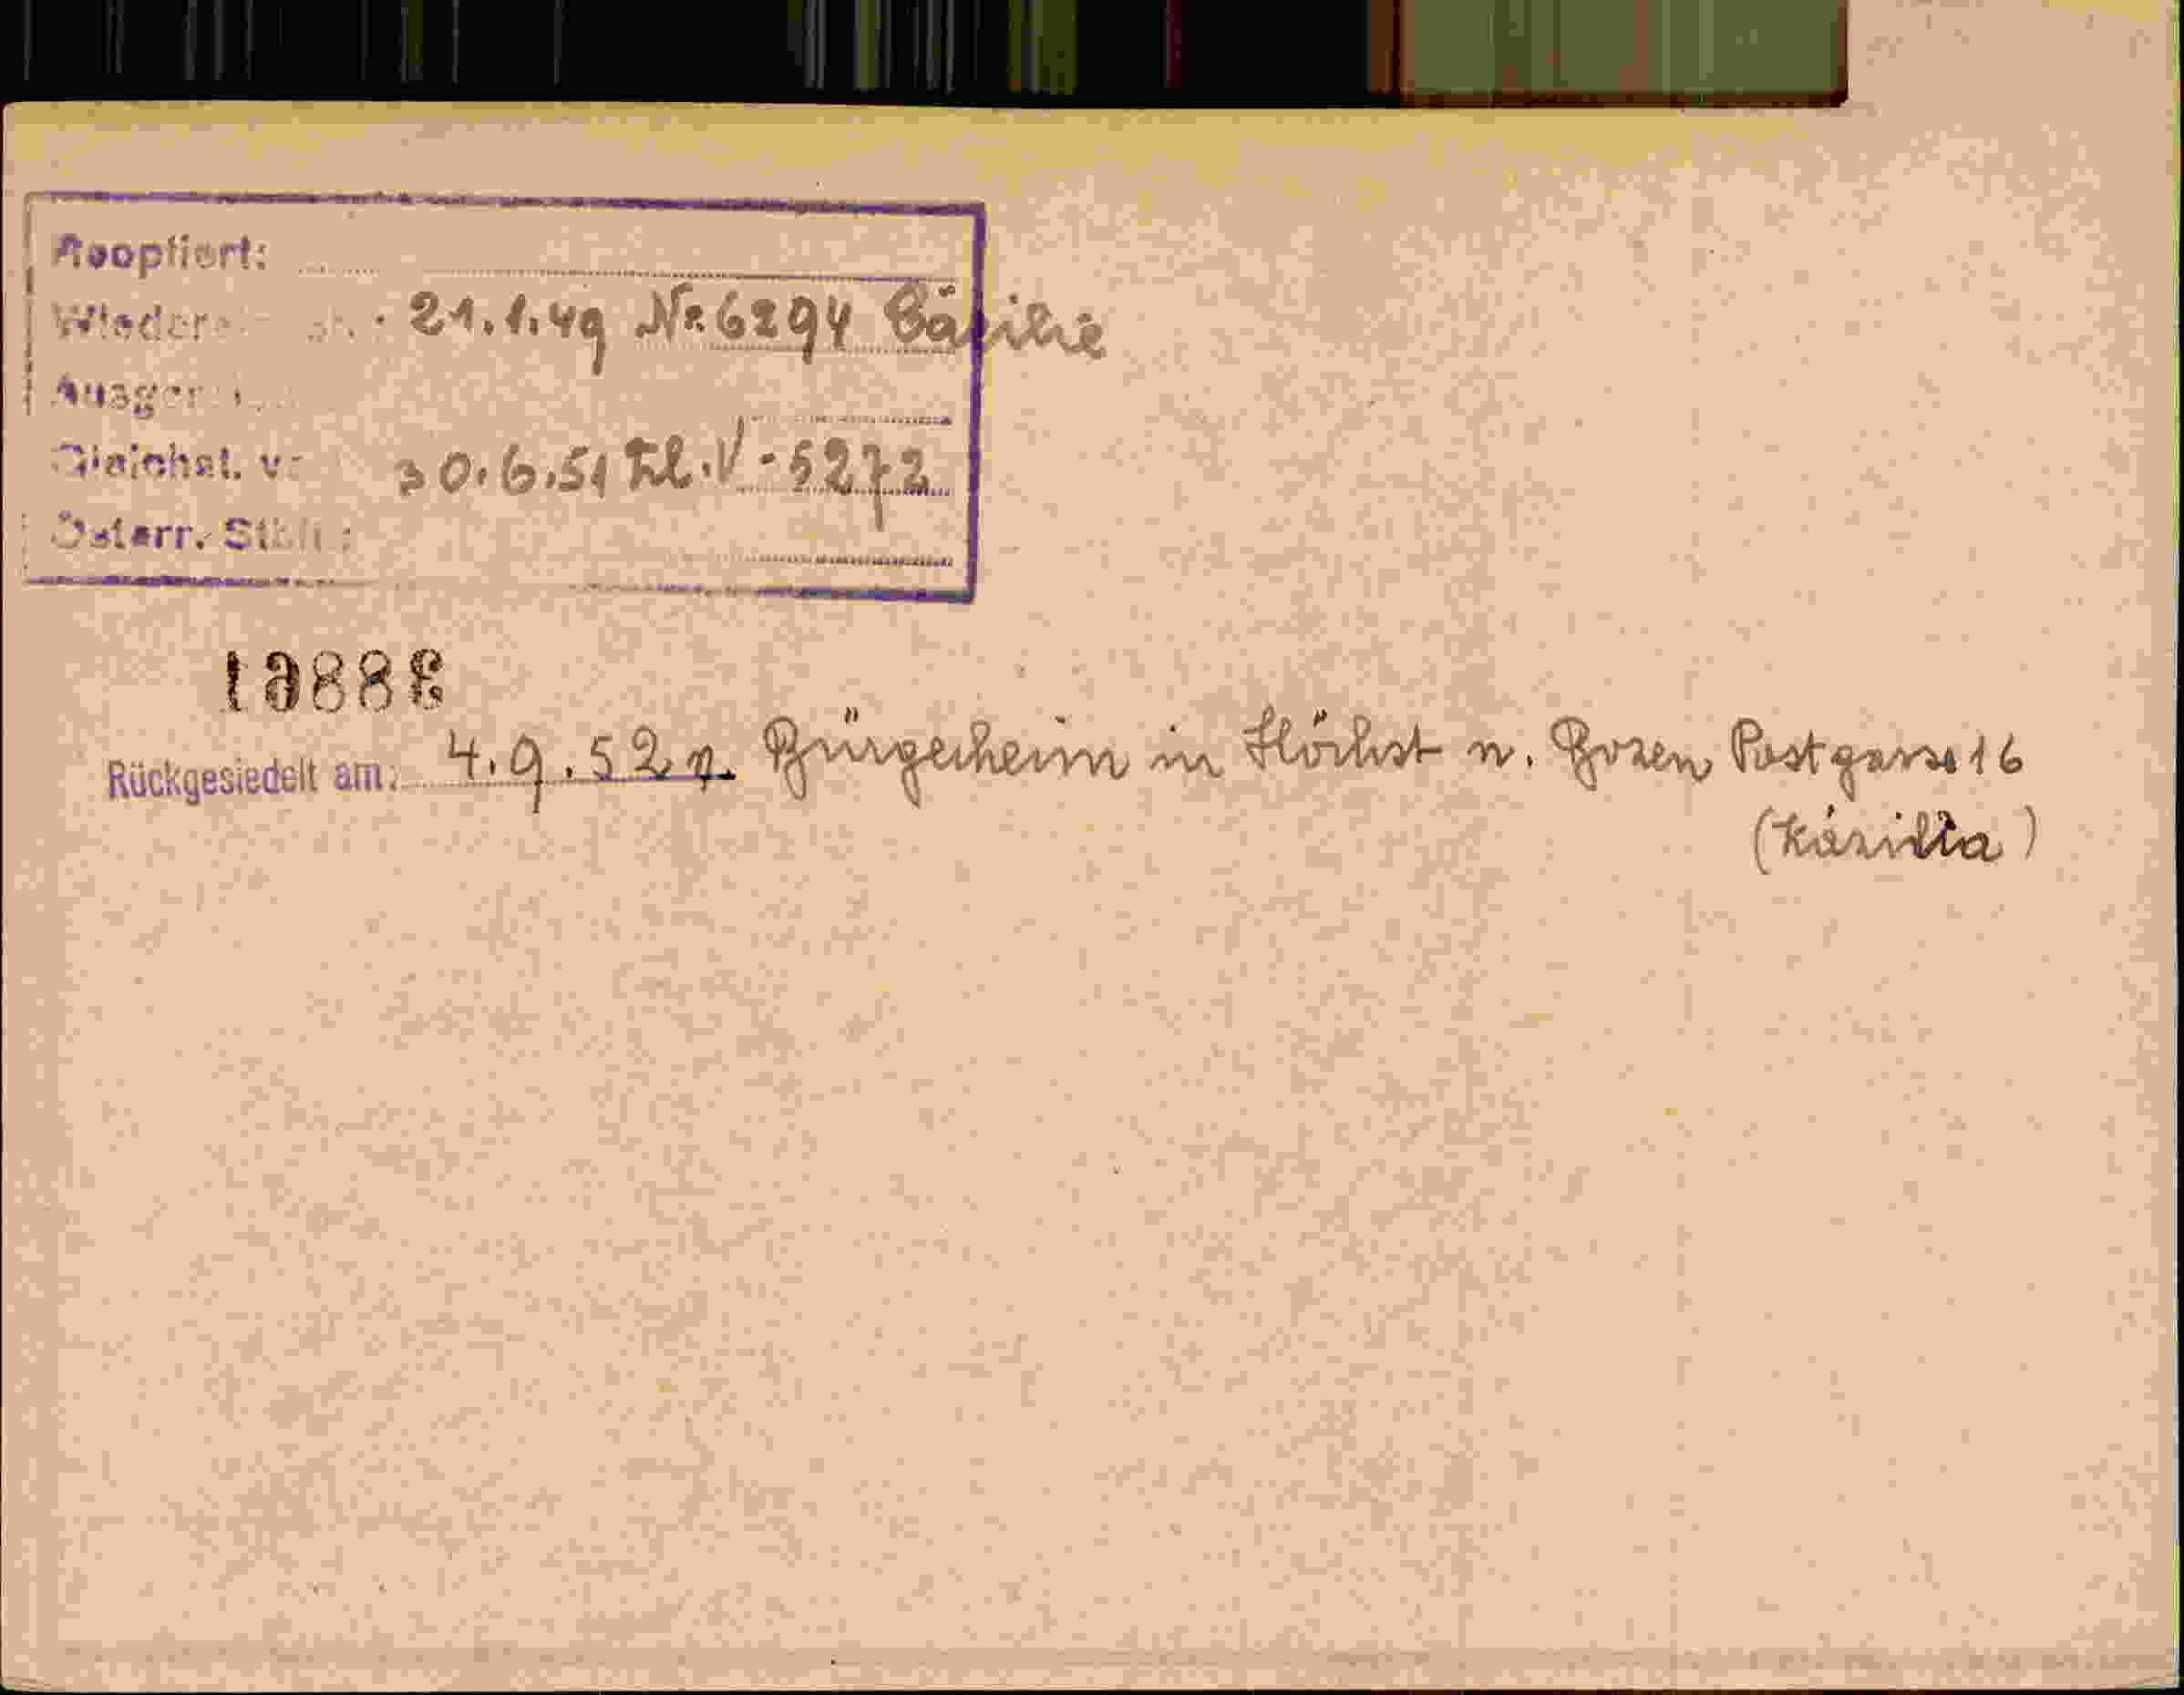 Reoptiert:
Wieder 21.1.49 Nr. 6294 Cäzilie
Ausger
Gleichst. v. 30.6.51 Zl. V-5272
Österr. Stb
19888
Rückgesiedelt am: 4.9.52 v. Bürgerheim in Höchst n. Bozen Postgasse 16
(Käzilia)